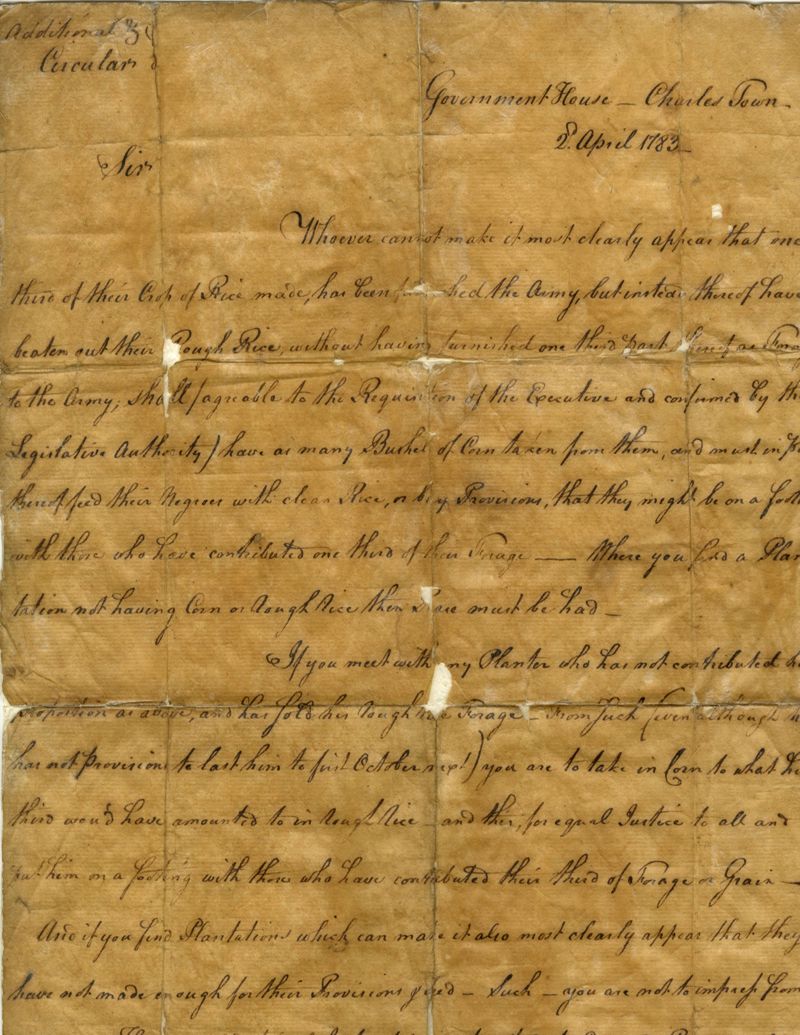 Additional
Circular
Government House — Charles Town —
2d. April 1783 —
Sir
Whoever cannot make it most clearly appear that one
third of their Crop of Rice made, has been the Army, but instead thereof have
beaten out their Rough Rice, without having furnished one third part thereof as Forag
to the Army; shall (agreable to the Requisition of the Executive and confirmed by the
Legislative Authority) have as many Bushel of Corn taken from them, and must in
thereof feed their Negroes with clean Rice, or buy Provisions, that they might be on a foot
with those who have contributed one third of their Forage — Where you find a Plan
tation not having Corn or Rough Rice then Rice must be had —
If you meet with any Planter who has not contributed
proportion as above, and has sold his Rough Forage — From Such (even although
has not Provisions to last him to first October next) you are to take in Corn to what
third wou'd have amounted to in Rough Rice — and this, for equal Justice to all and
put him on a footing with those who have contributed their third of Forage or Grain —
And if you find Plantations which can make it also most clearly appear that they
have not made enough for their Provisions — Such — you are not to impress from